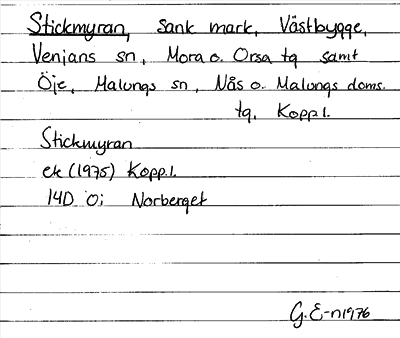 Stickmyran, sank mark, Västbygge,
Venjans sn, Mora o. Orsa tg samt
Öje, Malungs sn, Nås o. Malungs doms.
tg, Kopp l.
Stickmyran
ek (1975) Kopp.l.
14D 0i Norberget
G.E-n 1976